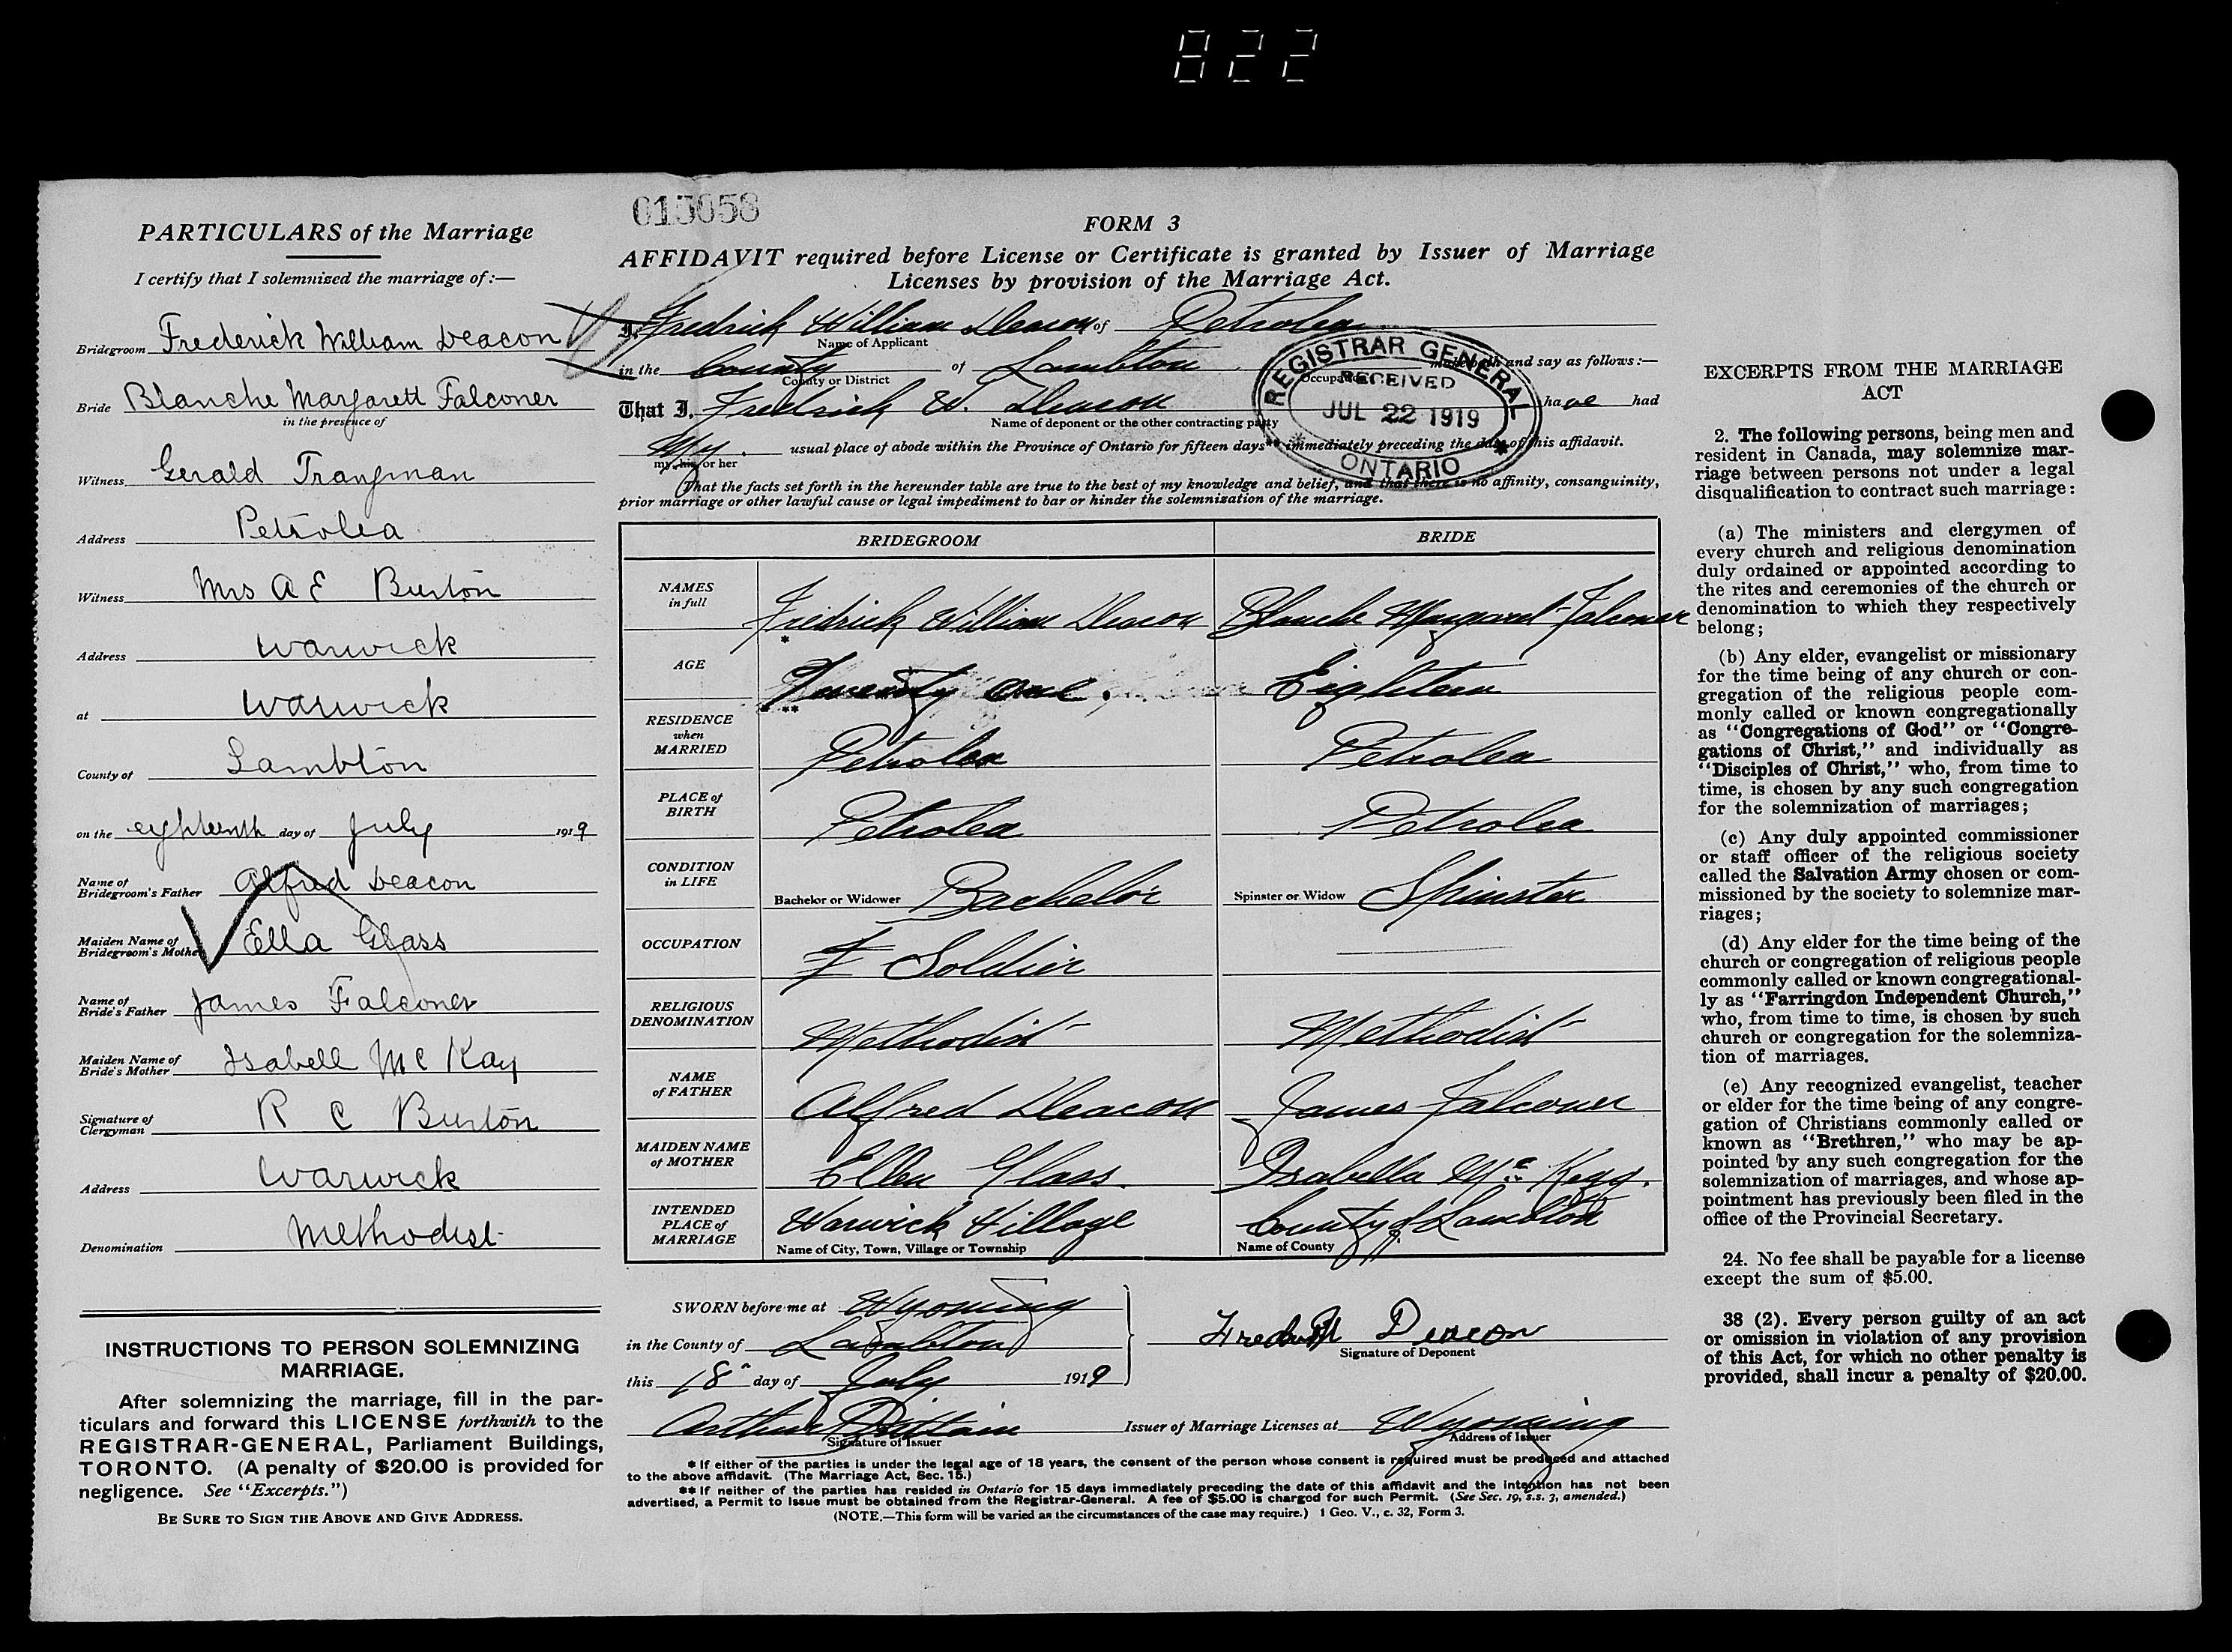 822
PARTICULARS of the Marriage
I certify that I solemnized the marriage of:—
Bridegroom Frederick William Deacon
Bride Blanche Margarett Falconer
in the presence of
Witness Gerald
Address Petrolea
Witness Mrs A E Burton
Address Warwick
at Warwick
County of Lambton
on the eighteenth day of July 1919
Name of
Bridegroom's Father Alfred Deacon
Maiden Name of
Bridegroom's Mother Ella Glass
Name of
Bride's Father James Falconer
Maiden Name of
Bride's Mother Isabell Mc Kay
Signature of
Clergyman R C Burton
Address Warwick
Denomination Methodist
INSTRUCTIONS TO PERSON SOLEMNIZING
MARRIAGE.
After solemnizing the marriage, fill in the par-
ticulars and forward this LICENSE forthwith to the
REGISTRAR-GENERAL, Parliament Buildings,
TORONTO. (A penalty of $20.00 is provided for
negligence. See "Excerpts.")
BE SURE TO SIGN THE ABOVE AND GIVE ADDRESS.
FORM 3
AFFIDAVIT required before License or Certificate is granted by Issuer of Marriage
Licenses by provision of the Marriage Act.
I, Fredrick William Deacon of Petrolea
Name of Applicant
in the County of Lambton make oath and say as follows:—
County or District
That I, Fredrick W. Deacon have had
Name of deponent or the other contracting party
My usual place of abode within the Province of Ontario for fifteen days** immediately preceding the date of this affidavit.
my, his or her
REGISTRAR GENERAL
RECEIVED
JUL 22 1919
ONTARIO
That the facts set forth in the hereunder table are true to the best of my knowledge and belief, and that there is no affinity, consanguinity,
prior marriage or other lawful cause or legal impediment to bar or hinder the solemnization of the marriage.
BRIDEGROOM BRIDE
NAMES
in full Fredrick William Deacon Blanche Margaret Falconer
*
AGE Twenty one. Eighteen
* **
RESIDENCE
when
MARRIED Petrolea Petrolea
PLACE of
BIRTH Petrolea Petrolea
CONDITION
in LIFE Bachelor or Widower Bachelor Spinster or Widow Spinster
OCCUPATION Soldier
RELIGIOUS
DENOMINATION Methodist Methodist
NAME
of FATHER Alfred Deacon James Falconer
MAIDEN NAME
of MOTHER Ellen Glass. Isabella Mc
INTENDED
PLACE of
MARRIAGE Warwick Village County of Lambton
Name of City, Town, Village or Township Name of County
SWORN before me at Wyoming
in the County of Lambton
this 18 day of July 1919
Fredrick Deacon
Signature of Deponent
Arthur Brittain Issuer of Marriage Licenses at Wyoming
Signature of Issuer Address of Issuer
* If either of the parties is under the legal age of 18 years, the consent of the person whose consent is required must be produced and attached
to the above affidavit. (The Marriage Act, Sec. 15.)
** If neither of the parties has resided in Ontario for 15 days immediately preceding the date of this affidavit and the intention has not been
advertised, a Permit to Issue must be obtained from the Registrar-General. A fee of $5.00 is charged for such Permit. (See Sec. 19, s.s. 3, amended.)
(NOTE.—This form will be varied as the circumstances of the case may require.) 1 Geo. V., c. 32, Form 3.
EXCERPTS FROM THE MARRIAGE
ACT
2. The following persons, being men and
resident in Canada, may solemnize mar-
riage between persons not under a legal
disqualification to contract such marriage:
(a) The ministers and clergymen of
every church and religious denomination
duly ordained or appointed according to
the rites and ceremonies of the church or
denomination to which they respectively
belong;
(b) Any elder, evangelist or missionary
for the time being of any church or con-
gregation of the religious people com-
monly called or known congregationally
as "Congregations of God" or "Congre-
gations of Christ," and individually as
"Disciples of Christ," who, from time to
time, is chosen by any such congregation
for the solemnization of marriages;
(c) Any duly appointed commissioner
or staff officer of the religious society
called the Salvation Army chosen or com-
missioned by the society to solemnize mar-
riages;
(d) Any elder for the time being of the
church or congregation of religious people
commonly called or known congregational-
ly as "Farringdon Independent Church,"
who, from time to time, is chosen by such
church or congregation for the solemniza-
tion of marriages.
(e) Any recognized evangelist, teacher
or elder for the time being of any congre-
gation of Christians commonly called or
known as "Brethren," who may be ap-
pointed by any such congregation for the
solemnization of marriages, and whose ap-
pointment has previously been filed in the
office of the Provincial Secretary.
24. No fee shall be payable for a license
except the sum of $5.00.
38 (2). Every person guilty of an act
or omission in violation of any provision
of this Act, for which no other penalty is
provided, shall incur a penalty of $20.00.